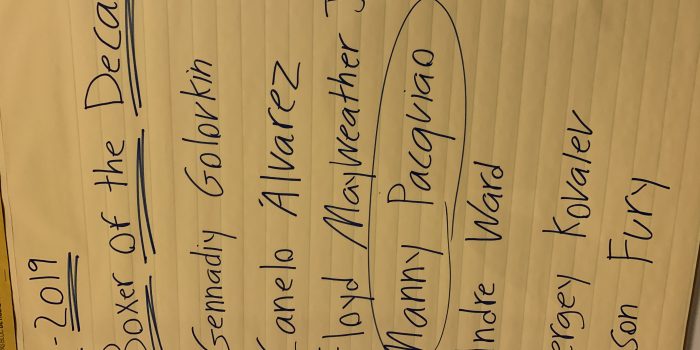 -2019
Boxer of the Deca
Gennadiy Golovkin
Canelo Álvarez
loyd Mayweather J
Manny Pacquiao
ndre Ward
ergey Kovalev
son Fury